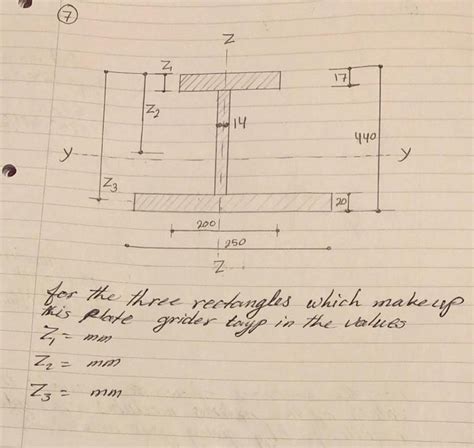 7
Z
Z1
17
Z2
14
440
Y
Y
Z3
20
200
250
Z
for the three rectangles which makeup
this plate grider tayp in the values
Z1 = mm
Z2 = mm
Z3 = mm